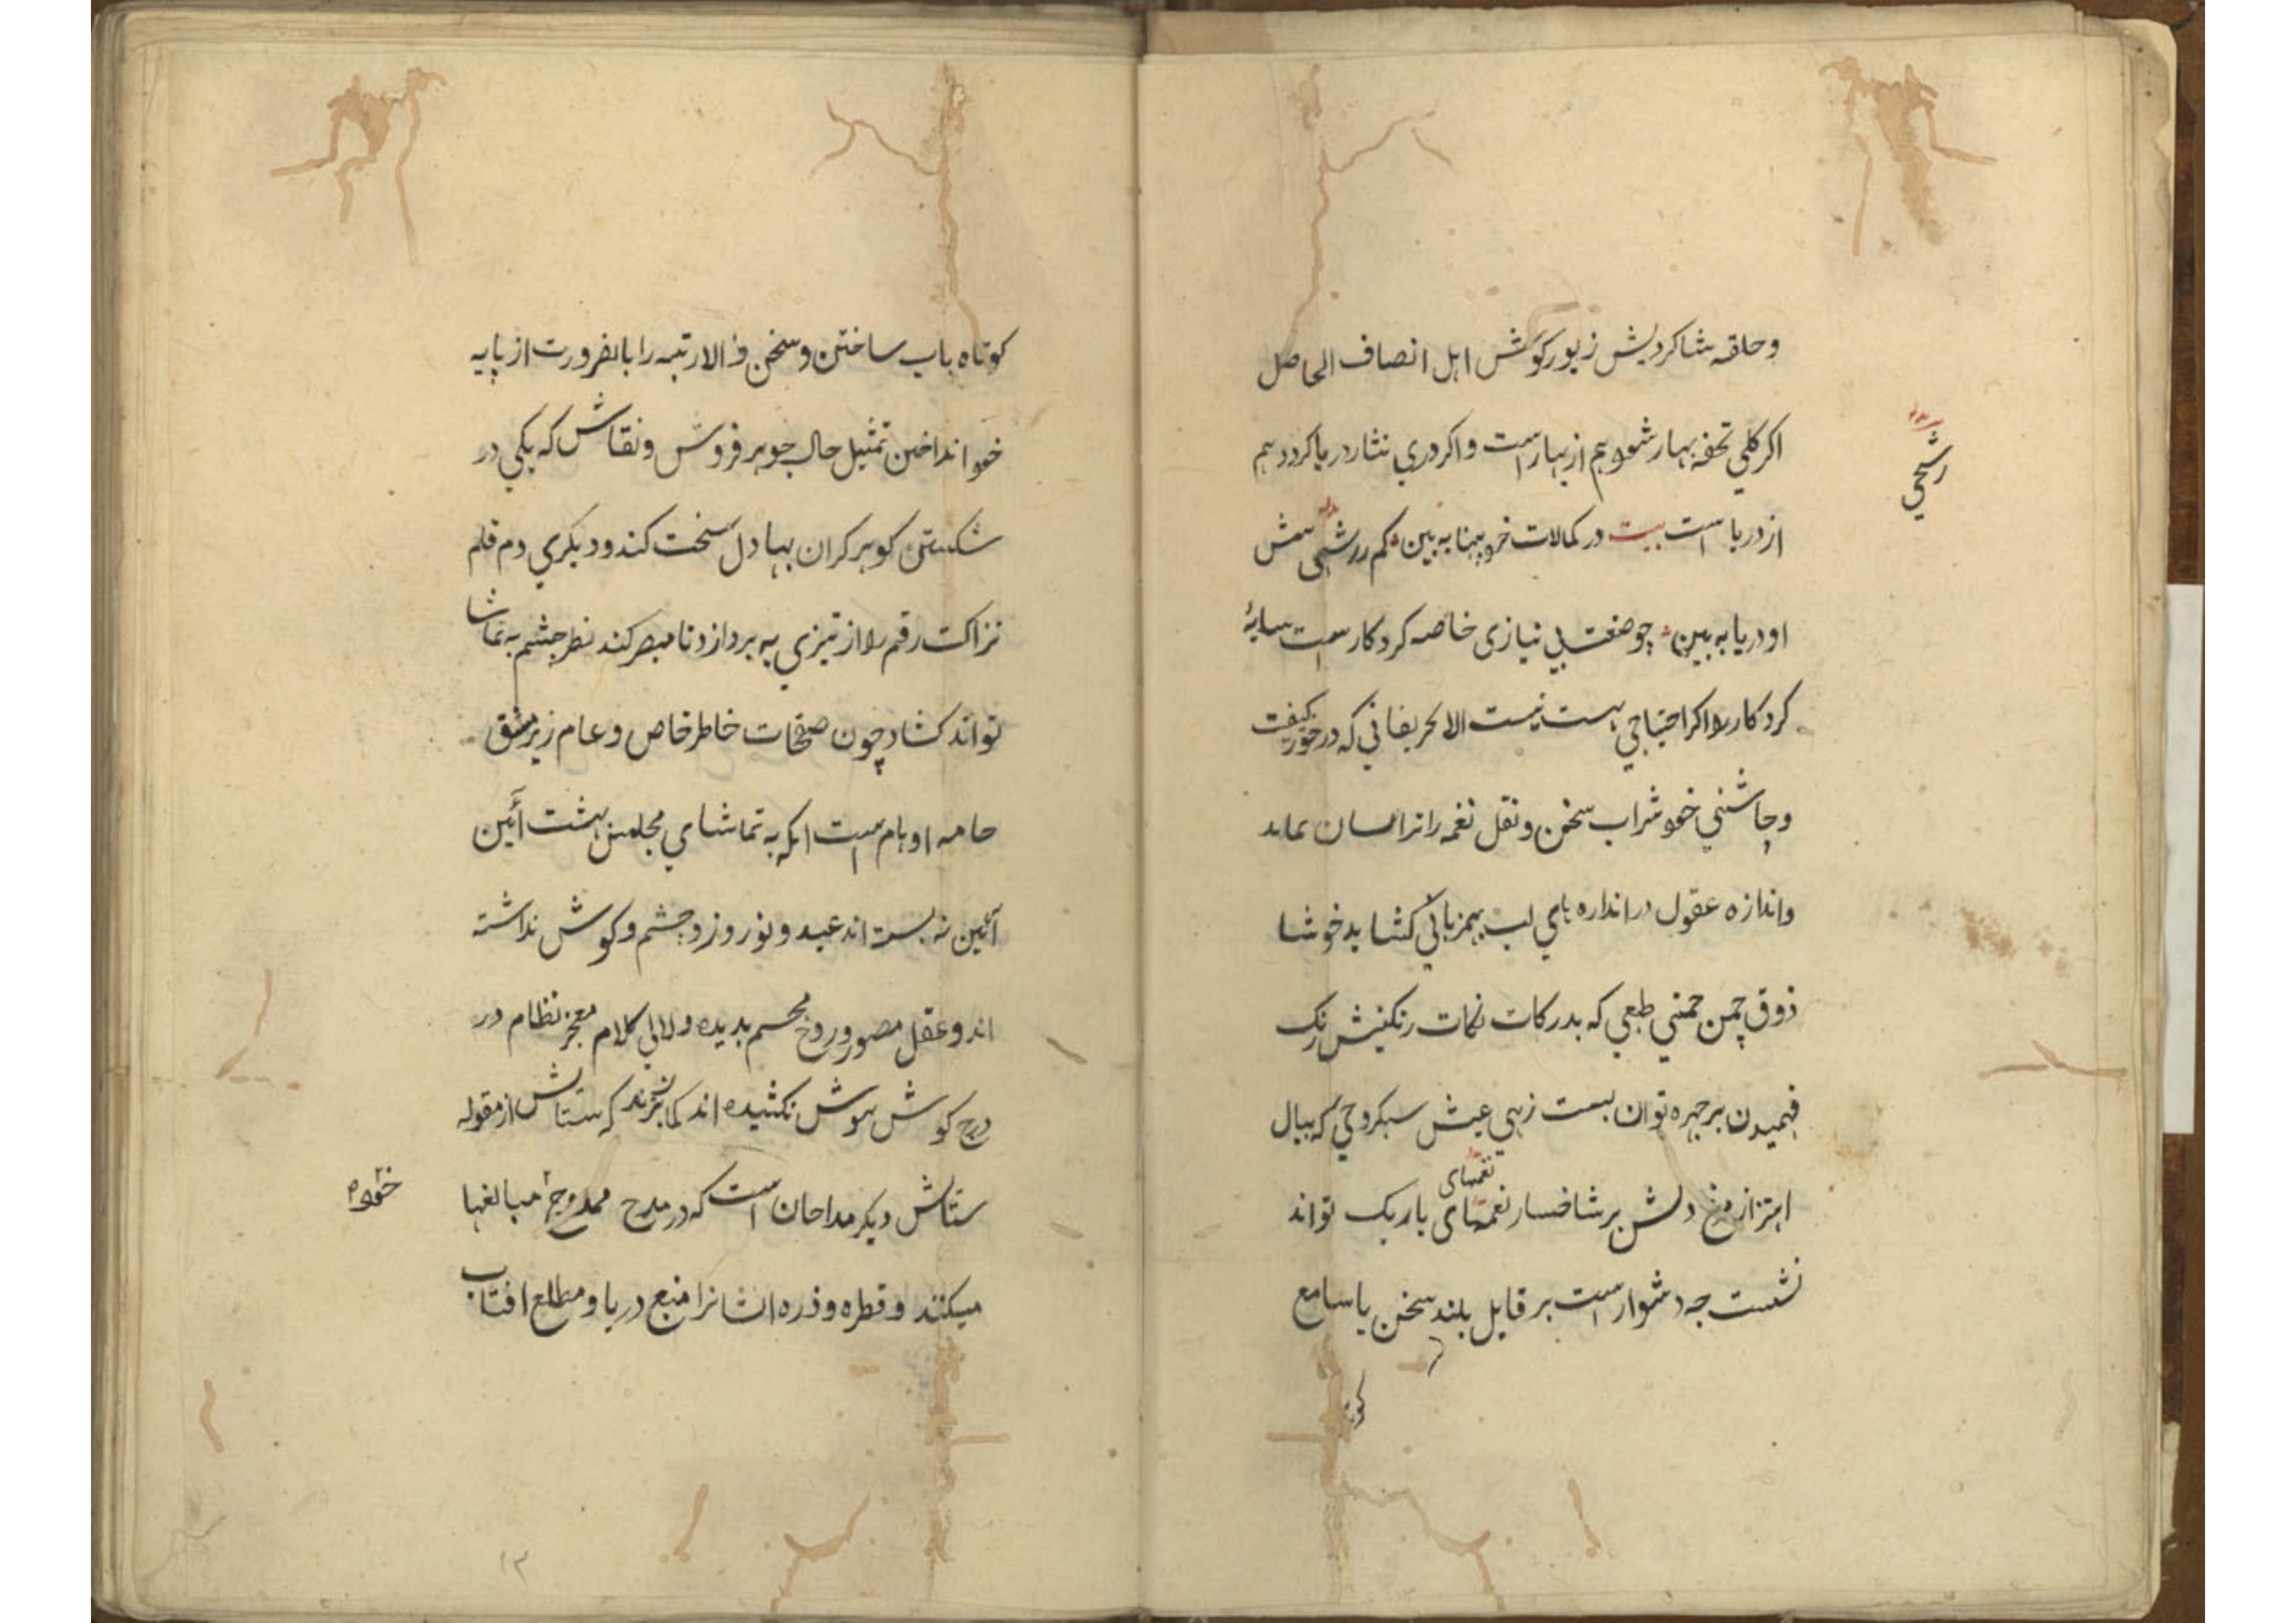 وحلقه شاکردیش زیور کوش اهل انصاف الحاصل
اکر کلی تحفه بهار شود هم از بهار است و اکر دری نثار دریا کردد هم
از دریا است بیت در کمالات خود بهنا به بین کم زرشحی شمش
رشحی
او دریا به بین چو صفت بی نیازی خاصه کردکار است سایهٔ
کردکار را اکر احتیاجی هست نیست الا بحریفانی که در خور کیفیت
و چاشنی خود شراب سخن و نقل نغمه رانرا
واندازه عقول در اندازهای لب بهمزبانی کشاید خوشا
ذوق چمن چمنی طبعی که بدرکات نکات رنکینش رنک
فهمیدن بر چهره توان بست زهی عیش سبکروحی که ببال
نغمهای
اهتزاز مرغ دلش بر شاخسار نغمهای باریک تواند
نشست چه دشوار است بر قایل بلند سخن با سامع
کوتاه باب ساختن و سخن والا رتبه را بالضرورت از پایه
خود انداختن تمثیل حال جوهر فروش و نقاش که یکی در
شکستن کوهر کران بها دل سخت کند و دیکری دم قلم
نزاکت رقم را از تیزی به پردازد تا مبصر کند نظر چشم به تماشا
تواند کشاد چون صفحات خاطر خاص و عام زیر مشق
خامه اوهام است انکه به تماشای مجلس بهشت آئین
آئین نه بسته اند عید و نوروز و چشم و کوش نداشته
اند و عقل مصور و روح مجسم ندیده و لالی کلام معجز نظام در
درج کوش هوش نکشیده اند کمان برند که ستایش از مقوله
ستایش دیکر مداحان است که در مدح ممدوح مبالغها
خود
میکنند و قطره و ذره ایشانرا منبع دریا و مطلع افتاب
۱۳